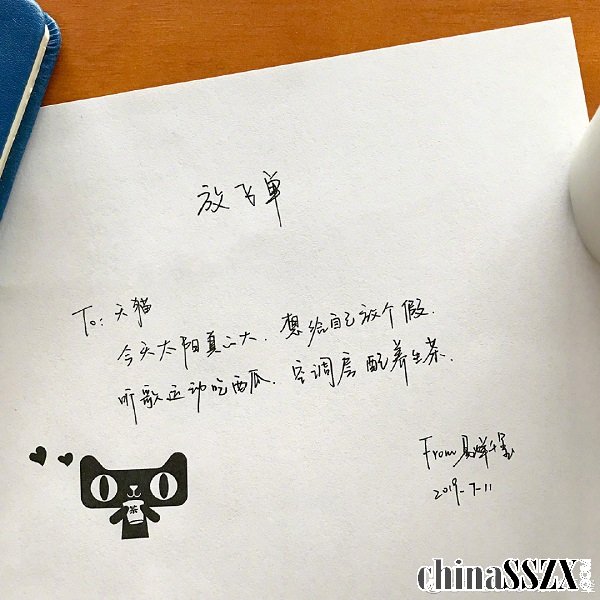 放飞单
To: 天猫
今天太阳真心大. 想给自己放个假.
听歌运动吃西瓜. 空调房配养生茶.
茶
From 易烊千玺
2019-7-11
chinaSSZX